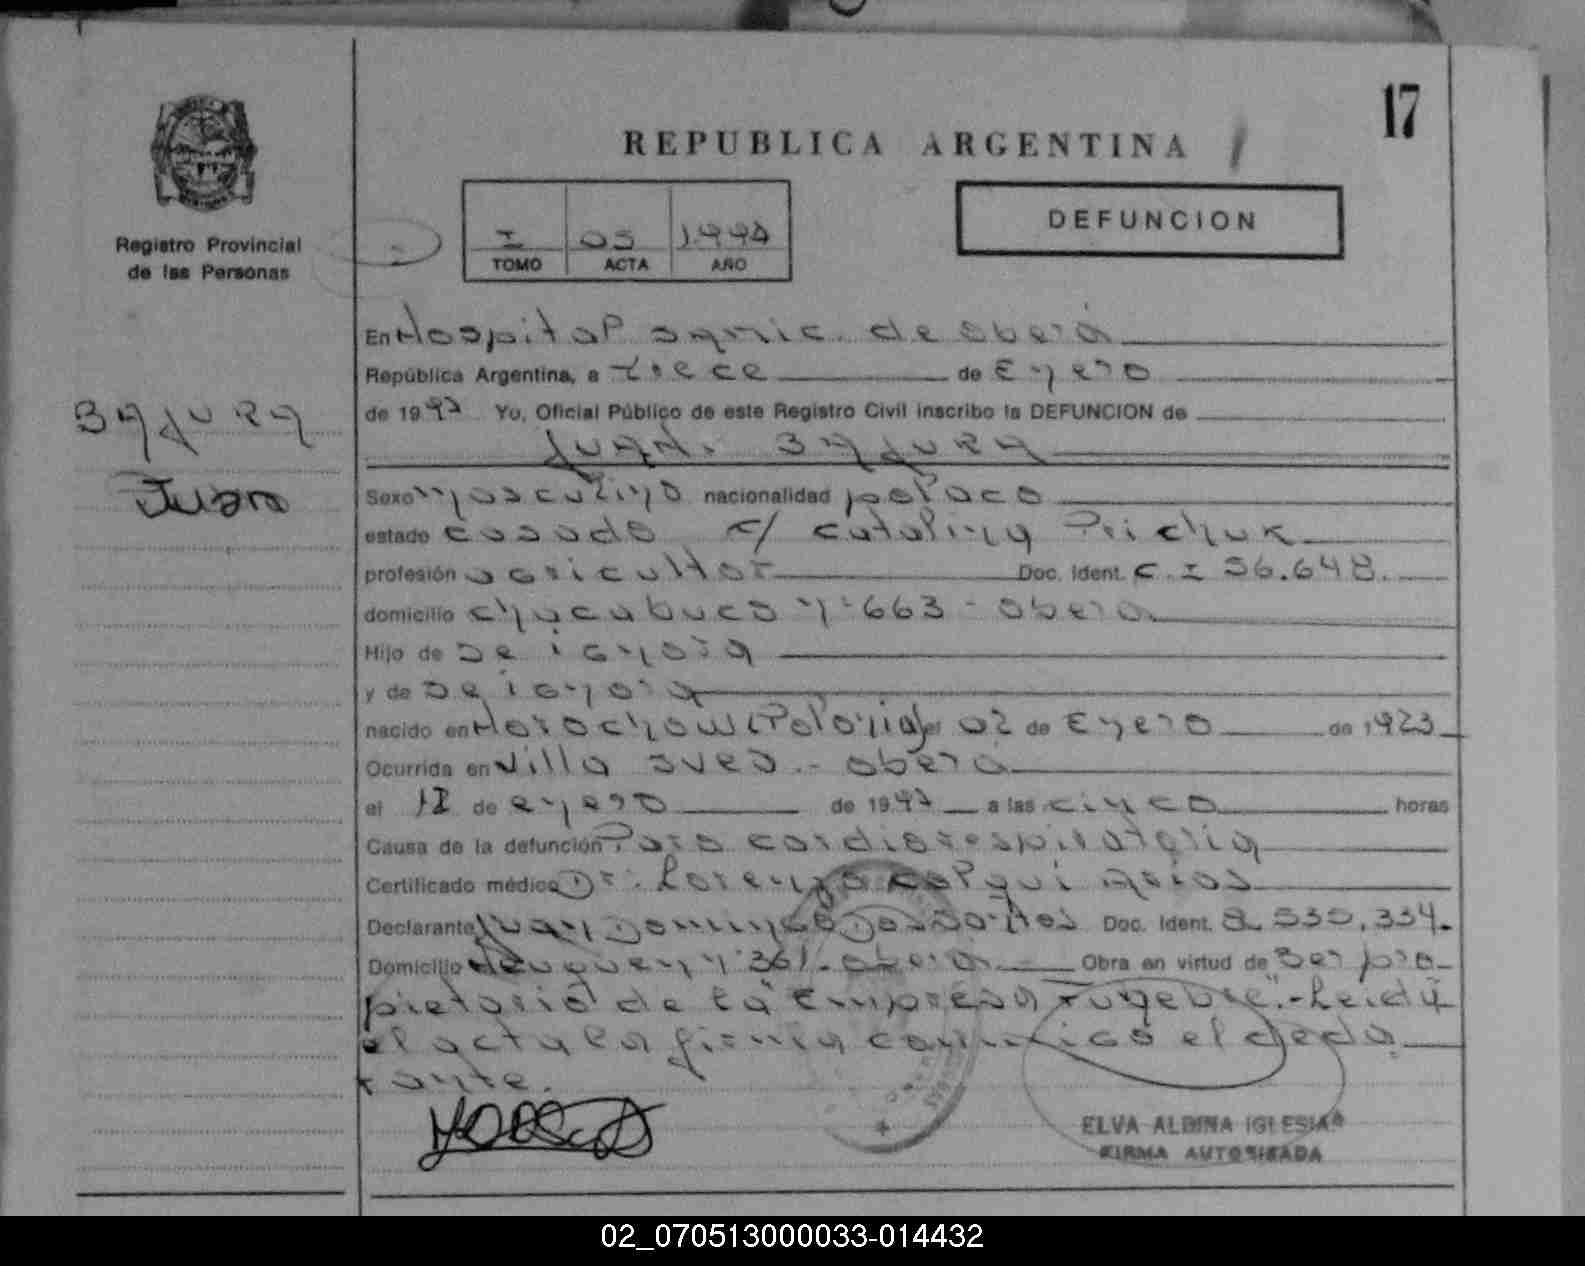 17
REPUBLICA ARGENTINA
Registro Provincial
de las Personas
I 05
TOMO ACTA AÑO
DEFUNCION
En Hospital de Oberá
República Argentina, a trece de Enero
de 19 Yo, Oficial Público de este Registro Civil inscribo la DEFUNCION de
JUAN. BAJURA
BAJURA
Juan
Sexo Masculino nacionalidad polaco
estado casado c/ catalina
profesión agricultor Doc. Ident. C.I 56.648.
domicilio chacabuco N° 663 - Oberá
Hijo de Se ignora
y de Se ignora
nacido en (Polonia) el 02 de Enero de 1923
Ocurrida en Villa - Oberá
el de enero de 19 a las cinco horas
Causa de la defunción Paro cardiorespiratoria
Certificado médico Dr. Lorenzo
Declarante Juan Domingo Dos Santos Doc. Ident. 8.535.334.
Domicilio Neuquen N° 361. Oberá Obra en virtud de Ser pro-
pietario de la "Empresa Funebre".- Leida
el acta la firma conmigo el decla
rante.
ELVA ALBINA IGLESIAS
FIRMA AUTORIZADA
02_070513000033-014432